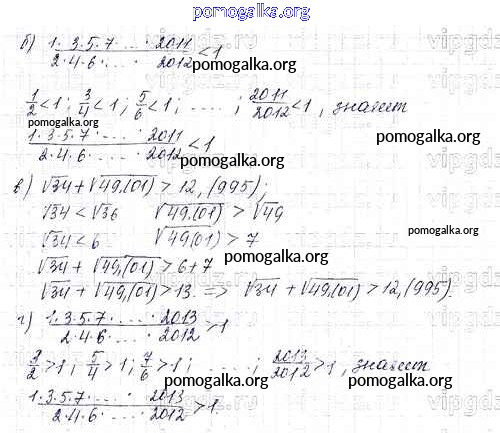 pomogalka.org
б) 1·3·5·7·...·2011 / 2·4·6·...·2012 < 1
pomogalka.org
1/2 < 1; 3/4 < 1; 5/6 < 1; ....; 2011/2012 < 1, значит
pomogalka.org
1·3·5·7·...·2011 / 2·4·6·...·2012 < 1
pomogalka.org
в) √34 + √49,(01) > 12,(995);
pomogalka.org
√34 < √36 √49,(01) > √49
√34 < 6 √49(01) > 7
pomogalka.org
√34 + √49,(01) > 6+7
pomogalka.org
√34 + √49,(01) > 13 => √34 + √49,(01) > 12,(995).
г) 1·3·5·7·...·2013 / 2·4·6·...·2012 > 1
pomogalka.org
3/2 > 1; 5/4 > 1; 7/6 > 1; ....; 2013/2012 > 1, значит
pomogalka.org pomogalka.org
1·3·5·7·...·2013 / 2·4·6·...·2012 > 1
pomogalka.org